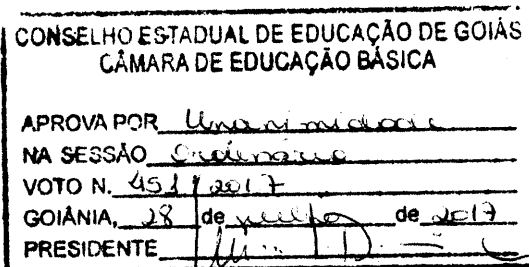 CONSELHO ESTADUAL DE EDUCAÇÃO DE GOIÁS
CÂMARA DE EDUCAÇÃO BÁSICA
APROVA POR Unanimidade
NA SESSÃO Ordinária
VOTO N. 451 / 2017
GOIÂNIA, 28 de de 2017
PRESIDENTE